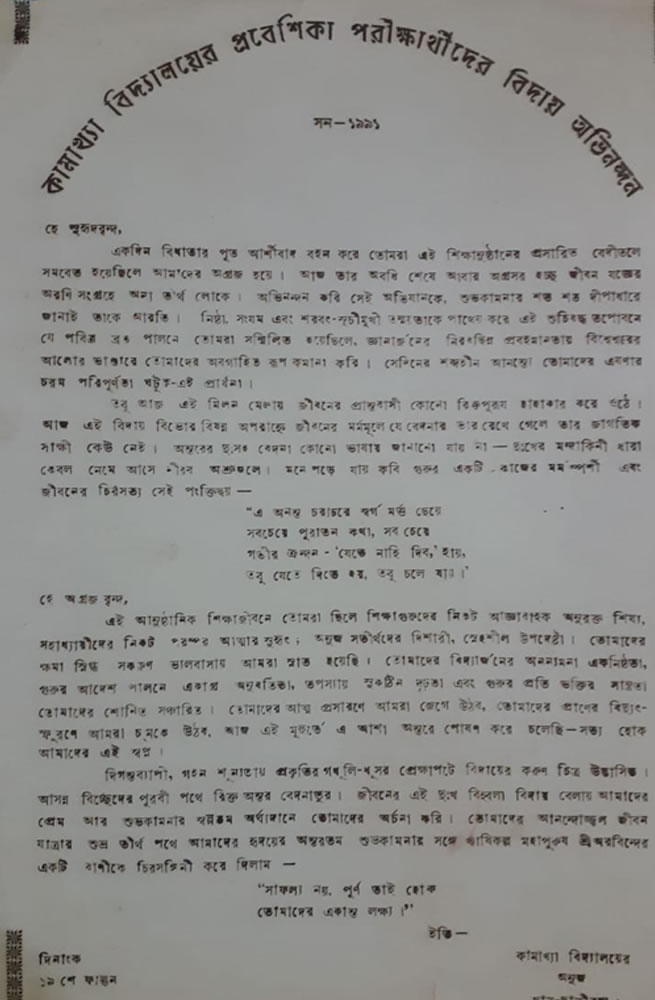 কামাখ্যা বিদ্যালয়ের প্রবেশিকা পরীক্ষার্থীদের বিদায় অভিনন্দন
সন—১৯৯১
হে সুহৃদবৃন্দ,
একদিন বিধাতার পূত আর্শীবাদ বহন করে তোমরা এই শিক্ষানুষ্ঠানের প্রসারিত বেদীতলে
সমবেত হয়েছিলে আমাদের অগ্রজ হয়ে। আজ তার অবধি শেষে আবার অগ্রসর হচ্ছ জীবন যজ্ঞের
অরণি সংগ্রহে অন্য তীর্থ লোকে। অভিনন্দন করি সেই অভিযানকে, শুভকামনার শত শত দীপাধারে
জানাই তাকে আরতি। নিষ্ঠা, সংযম এবং শরবৎ-সূচীমুখী তন্ময়তাকে পাথেয় করে এই শুচিবদ্ধ তপোবনে
যে পবিত্র ব্রত পালনে তোমরা সম্মিলিত হয়েছিলে, জ্ঞানার্জনের নিরবচ্ছিন্ন প্রবহমানতায় বিশ্বেশ্বরের
আলোর ভাণ্ডারে তোমাদের অবগাহিত রূপ কামনা করি। সেদিনের শব্দহীন আনন্দে তোমাদের এষণার
চরম পরিপূর্ণতা ঘটুক-এই প্রার্থনা।
তবু আজ এই মিলন মেলায় জীবনের প্রান্তবাসী কোনো রিক্তপুরুষ হাহাকার করে ওঠে।
আজ এই বিদায় বিভোর বিষণ্ণ অপরাহ্ণে জীবনের মর্মমূলে যে বেদনার ভার রেখে গেলে তার জাগতিক
সাক্ষী কেউ নেই। অন্তরের দুঃসহ বেদনা কোনো ভাষায় জানানো যায় না—দুঃখের মন্দাকিনী ধারা
কেবল নেমে আসে নীরব অশ্রুজলে। মনে পড়ে যায় কবি গুরুর একটি কাব্যের মর্মস্পর্শী এবং
জীবনের চিরসত্য সেই পংক্তিদ্বয়—
“এ অনন্ত চরাচরে স্বর্গ মর্ত্ত ছেয়ে
সবচেয়ে পুরাতন কথা, সব চেয়ে
গভীর ক্রন্দন - ‘যেতে নাহি দিব,’ হায়,
তবু যেতে দিতে হয়, তবু চলে যায়।’
হে অগ্রজ বৃন্দ,
এই আনুষ্ঠানিক শিক্ষাজীবনে তোমরা ছিলে শিক্ষাগুরুদের নিকট আজ্ঞাবাহক অনুরক্ত শিষ্য,
সহাধ্যায়ীদের নিকট পরস্পর আত্মার সুহৃৎ; অনুজ সতীর্থদের দিশারী, স্নেহশীল উপদেষ্টা। তোমাদের
ক্ষমা স্নিগ্ধ সকরুণ ভালবাসায় আমরা স্নাত হয়েছি। তোমাদের বিদ্যার্জনের অনন্যমনা একনিষ্ঠতা,
গুরুর আদেশ পালনে একাগ্র অনুবর্তিতা, তপস্যায় সুকঠিন দৃঢ়তা এবং গুরুর প্রতি ভক্তির সান্দ্রতা
তোমাদের শোণিত সঞ্চারিত। তোমাদের আত্ম প্রসারণে আমরা জেগে উঠব, তোমাদের প্রাণের বিদ্যুৎ-
স্ফুরণে আমরা চমকে উঠব, আজ এই মুহূর্তে এ আশা অন্তরে পোষণ করে চলেছি—সত্য হোক
আমাদের এই স্বপ্ন।
দিগন্তব্যাপী, গহন শূন্যতায় প্রকৃতির গধূলি-ধূসর প্রেক্ষাপটে বিদায়ের করুণ চিত্র উদ্ভাসিত।
আসন্ন বিচ্ছেদের পুরবী পথে রিক্ত অন্তর বেদনাতুর। জীবনের এই দুঃখ বিহ্বলা বিদায় বেলায় আমাদের
প্রেম আর শুভকামনার স্বল্পতম অর্ঘ্যদানে তোমাদের অর্চনা করি। তোমাদের আনন্দোজ্জ্বল জীবন
যাত্রার শুভ্র তীর্থ পথে আমাদের হৃদয়ের অন্তরতম শুভকামনার সঙ্গে ঋষিকল্প মহাপুরুষ শ্রীঅরবিন্দের
একটি বাণীকে চিরসঙ্গিনী করে দিলাম —
“সাফল্য নয়, পূর্ণ তাই হোক
তোমাদের একান্ত লক্ষ্য।”
ইতি—
দিনাংক
১৯ শে ফাল্গুন
কামাখ্যা বিদ্যালয়ের
অনুজ